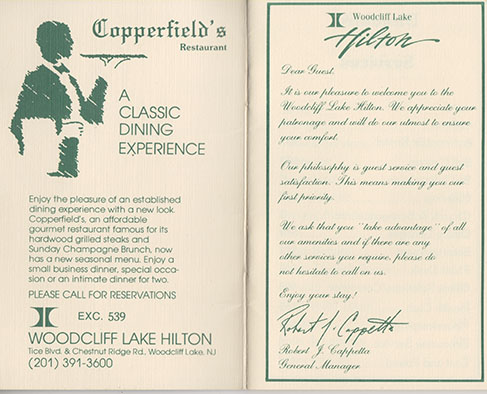 Copperfield's
Restaurant
A
CLASSIC
DINING
EXPERIENCE
Enjoy the pleasure of an established
dining experience with a new look.
Copperfield's, an affordable
gourmet restaurant famous for its
hardwood grilled steaks and
Sunday Champagne Brunch, now
has a new seasonal menu. Enjoy a
small business dinner, special occa-
sion or an intimate dinner for two.
PLEASE CALL FOR RESERVATIONS
EXC. 539
WOODCLIFF LAKE HILTON
Tice Blvd. & Chestnut Ridge Rd., Woodcliff Lake, NJ
(201) 391-3600
Woodcliff Lake
Hilton
Dear Guest,
It is our pleasure to welcome you to the
Woodcliff Lake Hilton. We appreciate your
patronage and will do our utmost to ensure
your comfort.
Our philosophy is guest service and guest
satisfaction. This means making you our
first priority.
We ask that you "take advantage" of all
our amenities and if there are any
other services you require, please do
not hesitate to call on us.
Enjoy your stay!
Robert J. Cappetta
Robert J. Cappetta
General Manager